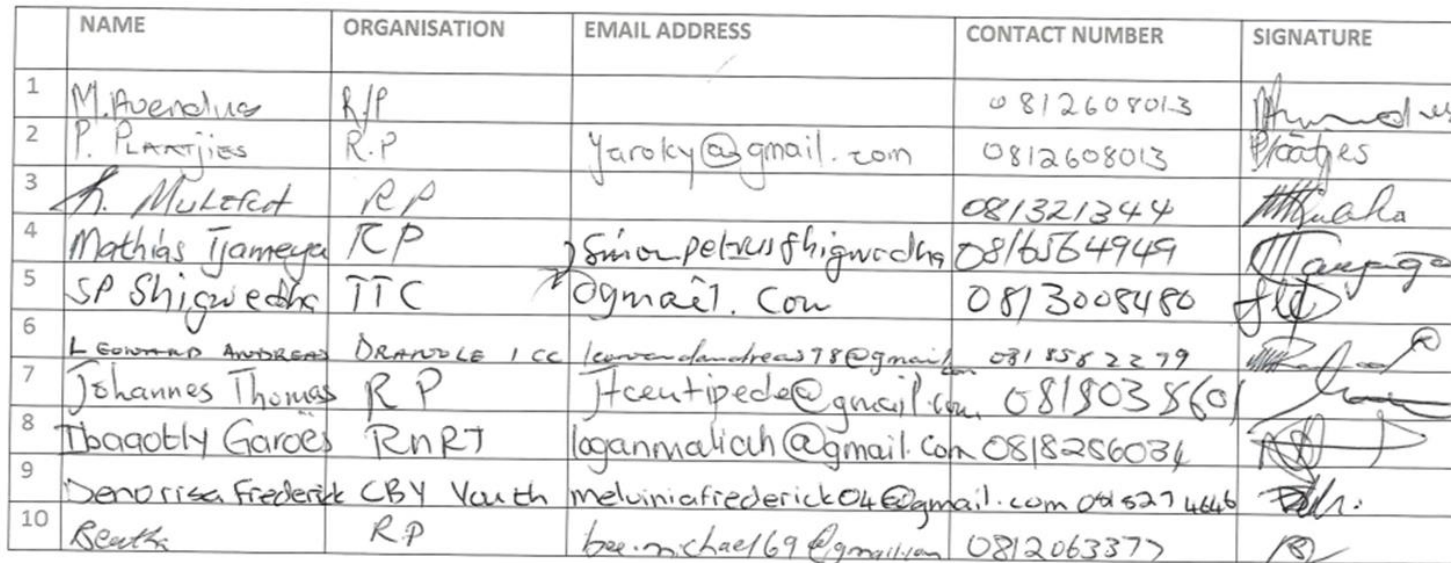 NAME ORGANISATION EMAIL ADDRESS CONTACT NUMBER SIGNATURE
1 M. Avendus R/P 0812608013
2 P. PLAATJIES R.P yaroky@gmail.com 0812608013 Plaatjies
3 RP 081321344
4 Mathias Tjameya RP Simonpetrusshigwedha 0816564949
5 SP Shigwedha TTC @gmail.com 0813008480
6 LEONARD ANDREAS ORANDLE 1 CC leonardandreas78@gmail.com 0818562279
7 Johannes Thomas RP Jtcentipede@gmail.com
8 Ibagotly Garoes RnRJ loganmaliah@gmail.com 0818286034
9 Denorisa Frederick CBY Youth melviniafrederick04@gmail.com
10 R.P bee.michael69@gmail.com 0812063377